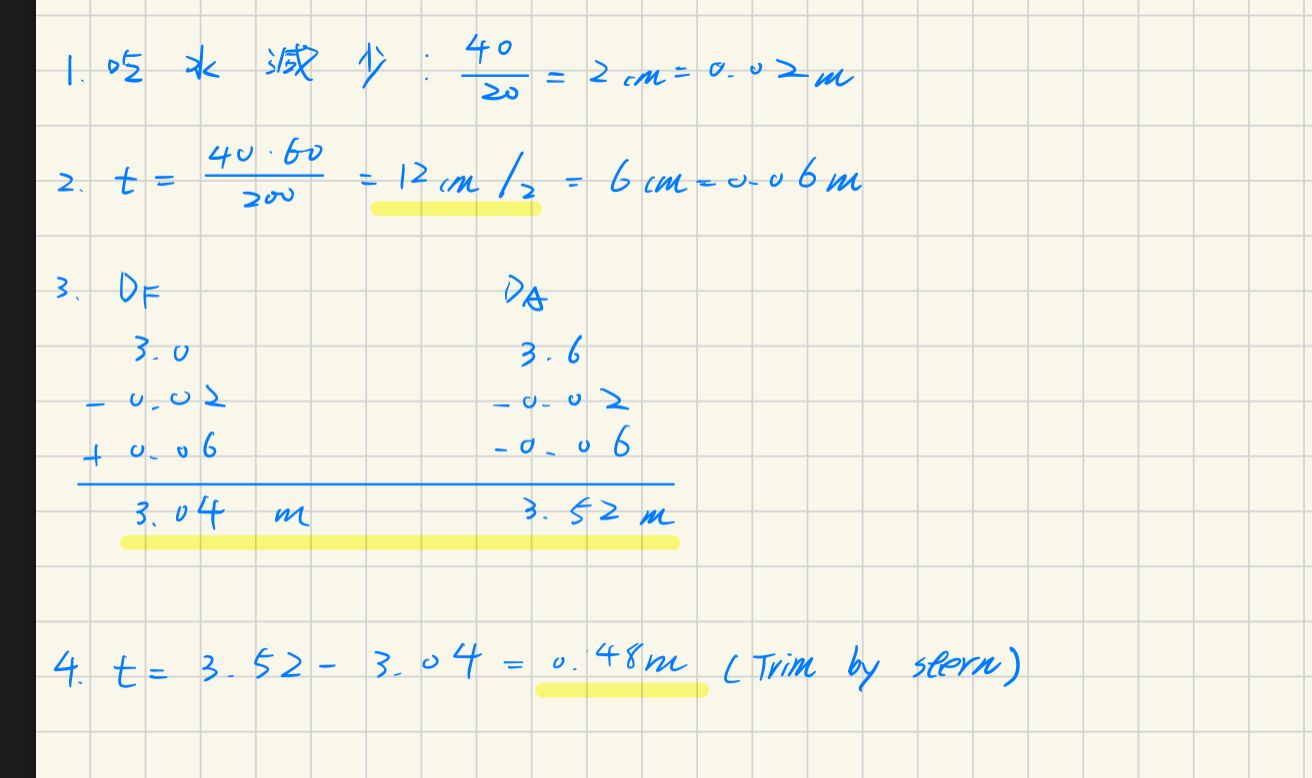 1. 吃水减少: 40/20 = 2 cm = 0.02 m
2. t = 40·60/200 = 12 cm /2 = 6 cm = 0.06 m
3. DF DA
3.0 3.6
- 0.02 -0.02
+ 0.06 -0.06
3.04 m 3.52 m
4. t = 3.52 - 3.04 = 0.48m (Trim by stern)